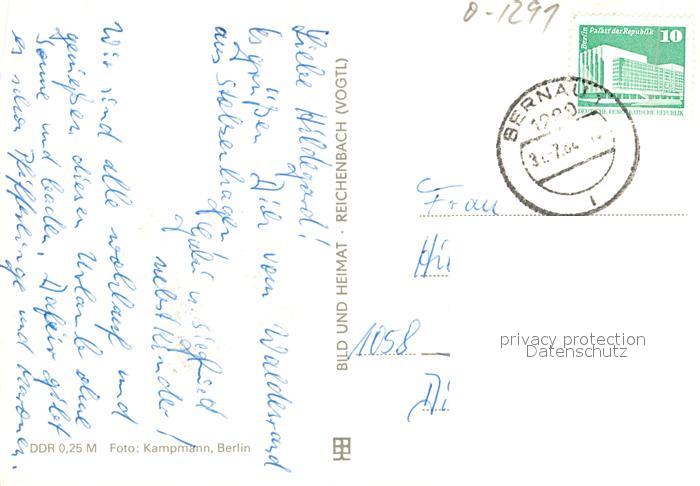 Liebe Hildegard!
Es grüßen Dich vom Waldesrand
aus Stolzenhagen
Gabi u. Siegfried
nebst Kinder!
Wir sind alle wohlauf und
genießen diesen Urlaub ohne
Sonne und baden. Dafür gibt
es schon Pfifferlinge und
DDR 0,25 M Foto: Kampmann, Berlin
BILD UND HEIMAT · REICHENBACH (VOGTL)
0-1291
Berlin Palast der Republik
10
DEUTSCHE DEMOKRATISCHE REPUBLIK
BERNAU 1
Frau
Hil
1058
privacy protection
Datenschutz